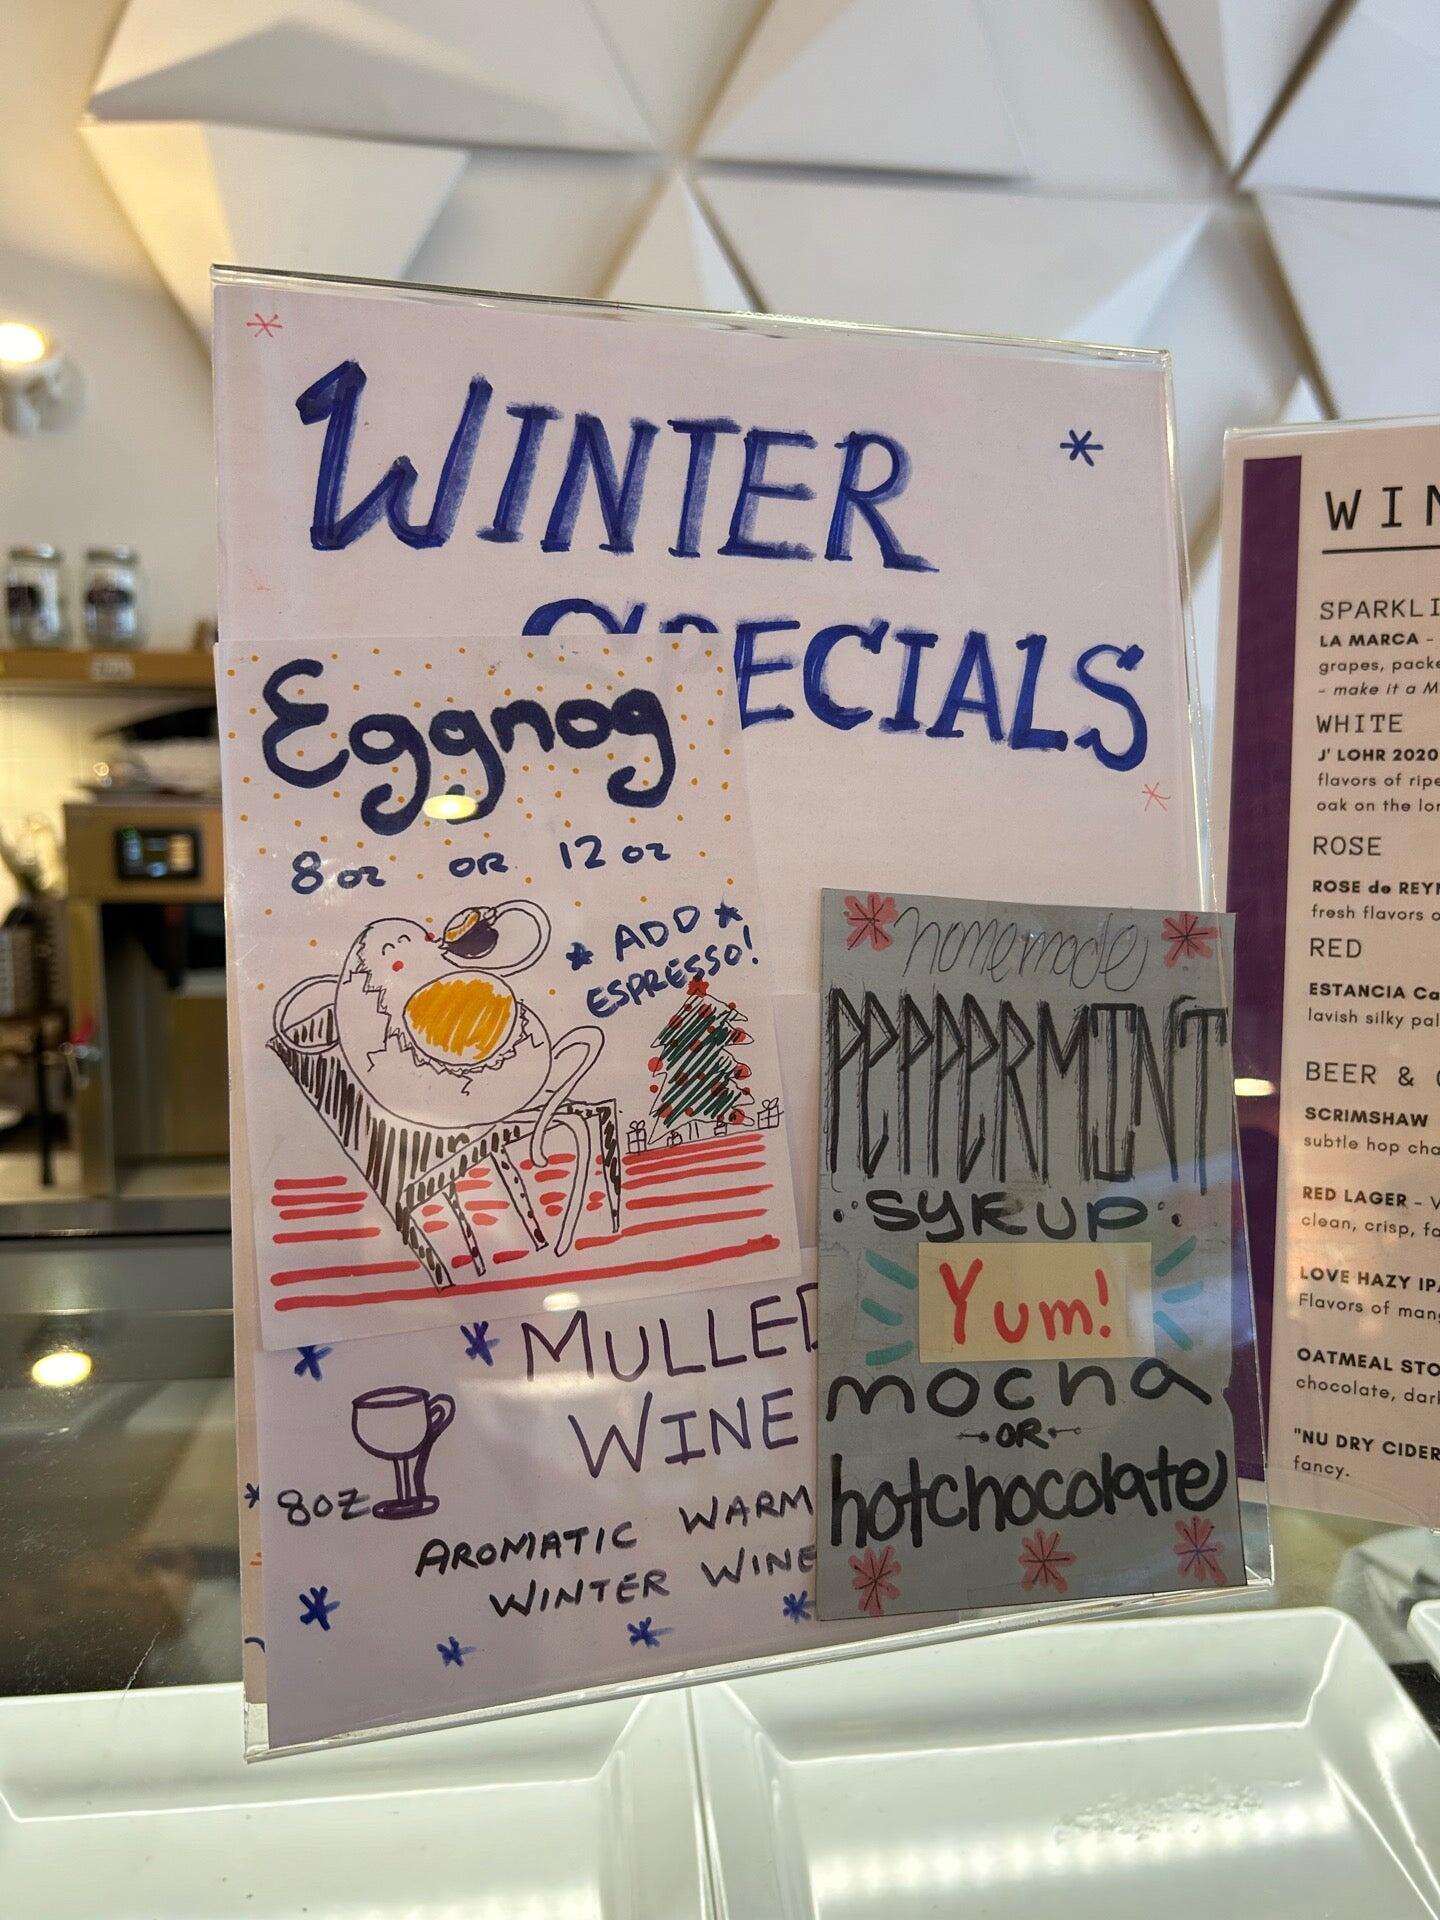 WINTER
SPECIALS
Eggnog
8oz OR 12oz
ADD
ESPRESSO!
MULLED
WINE
8OZ
AROMATIC WARM
WINTER WINE
homemade
PEPPERMINT
SYRUP
Yum!
mocha
OR
hotchocolate
WIN
SPARKLI
LA MARCA -
grapes, packe
- make it a M
WHITE
J' LOHR 2020
flavors of ripe
oak on the lon
ROSE
ROSE de REYN
fresh flavors o
RED
ESTANCIA Ca
lavish silky pal
BEER &
SCRIMSHAW
subtle hop cha
RED LAGER - V
clean, crisp, fa
LOVE HAZY IPA
Flavors of mang
OATMEAL STO
chocolate, dark
"NU DRY CIDER
fancy.